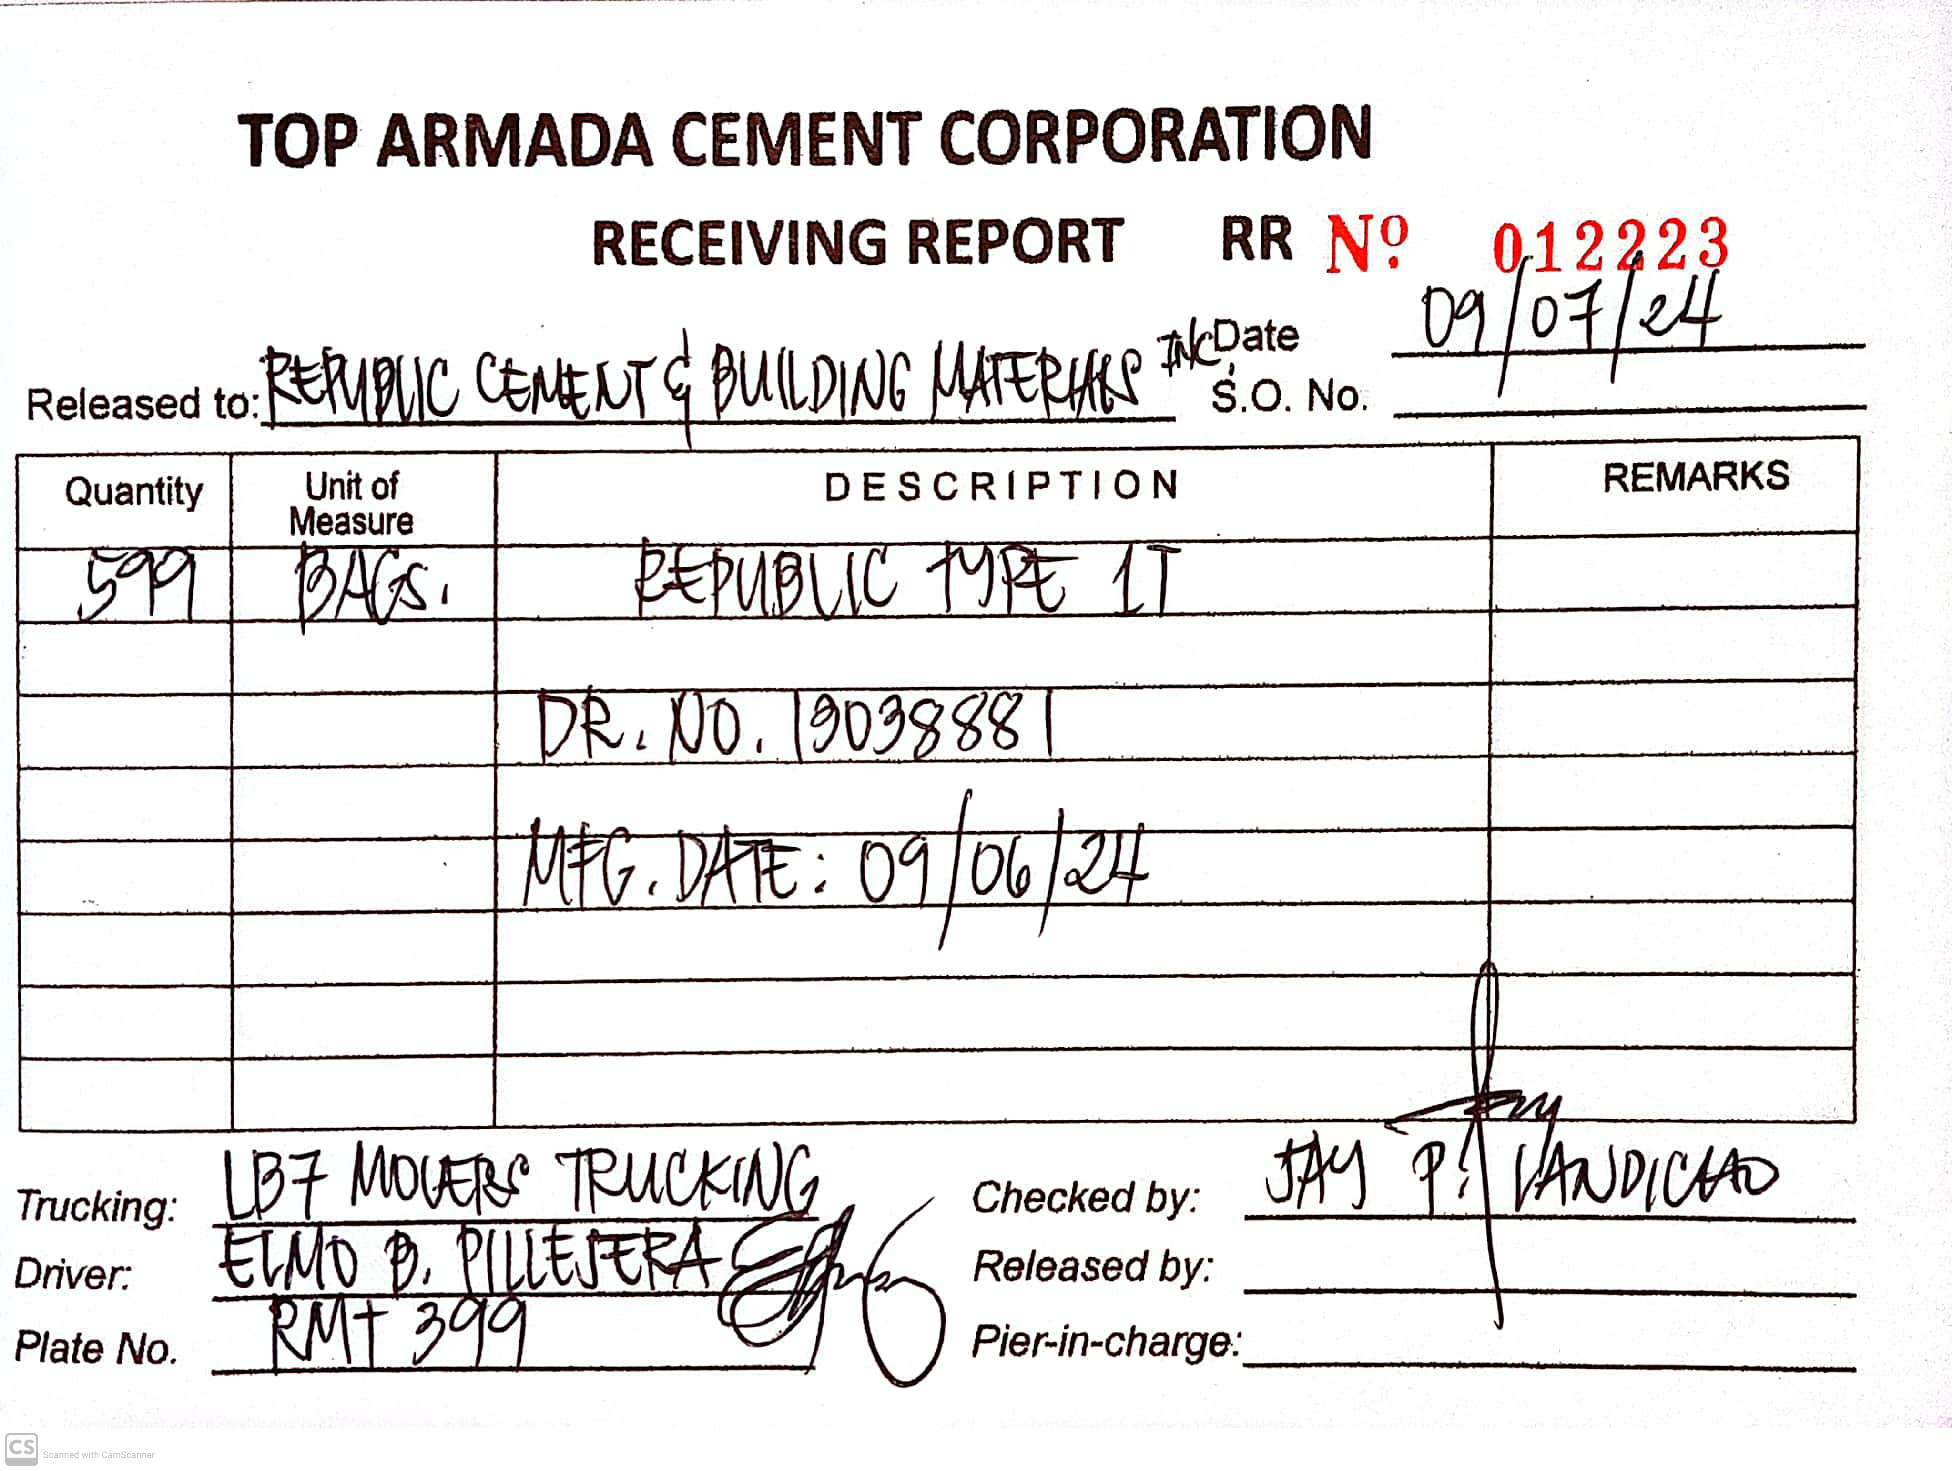 TOP ARMADA CEMENT CORPORATION
RECEIVING REPORT RR Nº 012223
Date 09/07/24
Released to: REPUBLIC CEMENT & BUILDING MATERIALS INC.
S.O. No.
Quantity Unit of Measure DESCRIPTION REMARKS
599 BAGS. REPUBLIC TYPE 1T
DR. NO. 19038881
MFG. DATE: 09/06/24
Trucking: LB7 MOVERS TRUCKING Checked by: JAY P.
Driver: ELMO B. PILLEJERA Released by:
Plate No. RMT 399 Pier-in-charge:
CS Scanned with CamScanner